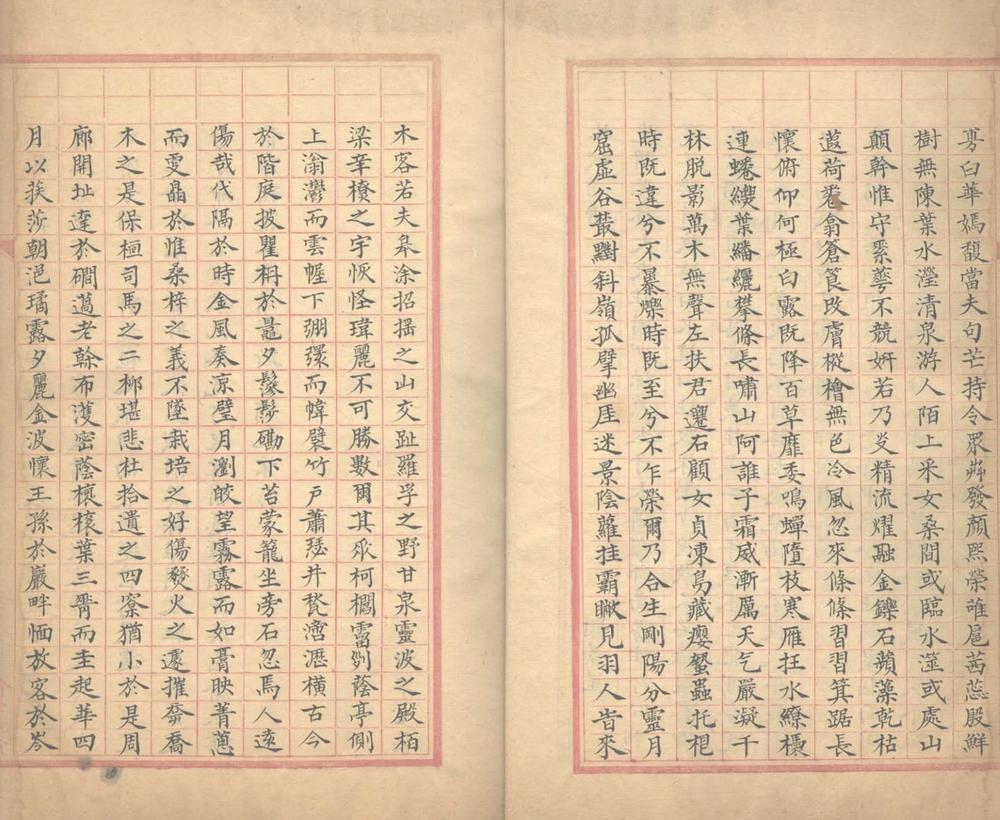 臼華嫣馥當夫句芒持令眾芔發顏熙榮雖扈茜蕊殷鮮
樹無陳葉水瀅清泉游人陌上采女桑間或臨水澨或處山
顛幹惟守素蕚不競妍若乃炎精流耀融金鑠石蘋藻乾枯
菡荷卷翕蒼筤改膚樅檜無色冷風忽來條條習習箕踞長
懷俯仰何極白露既降百草靡委鳴蟬墮枝寒雁在水繚櫋
連蜷纓葉繙纚攀條長嘯山阿誰子霜威漸厲天气嚴凝千
林脫影萬木無聲左扶君遷右顧女貞凍鳥藏癭蟄蟲托梖
時既違兮不暴爍時既至兮不乍榮爾乃合生剛陽分靈月
窟虛谷叢對斜嶺孤擘幽厓迷景陰蘿挂霸瞰見羽人昔來
木客若夫皋涂招搖之山交趾羅孚之野甘泉靈波之殿栢
梁辛橑之宇恢怪瑋麗不可勝數爾其柯櫩霤列蔭亭側
上滃灣而雲幄下弸彋而幃襞竹戶蕭瑟井甃澑瀝橫古今
於階庭披瞿枏於鼂夕鬖髿磡下苔蒙籠坐旁石忽焉人遠
傷哉代隔於時金風奏涼璧月瀏皎望霧露而如膏映菁蔥
而雯晶於惟桑梓之義不墜栽培之好傷發火之遽摧奔喬
木之是保桓司馬之二柳堪悲杜拾遺之四寮猶小於是周
廊開址達於磵薖老榦布濩密蔭榱橑葉三霄而圭起華四
月以挨莎朝浥璚露夕麗金波懷王孫於巖畔愐放客於岑